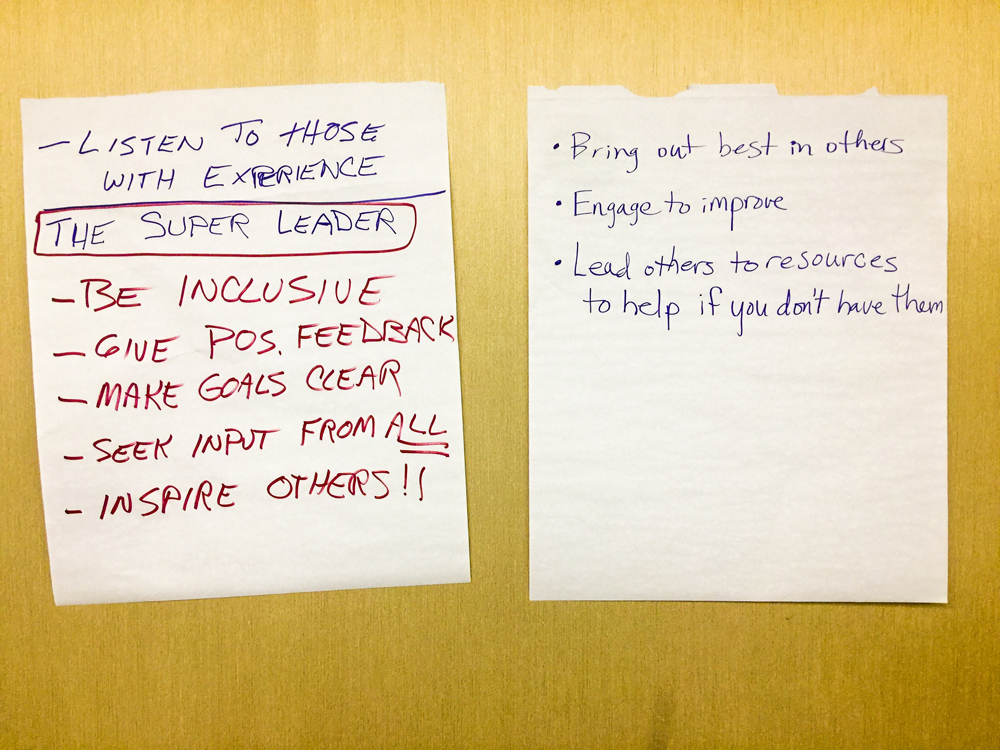 - LISTEN TO THOSE
WITH EXPERIENCE
THE SUPER LEADER
- BE INCLUSIVE
- GIVE POS. FEEDBACK
- MAKE GOALS CLEAR
- SEEK INPUT FROM ALL
- INSPIRE OTHERS!!
• Bring out best in others
• Engage to improve
• Lead others to resources
to help if you don't have them